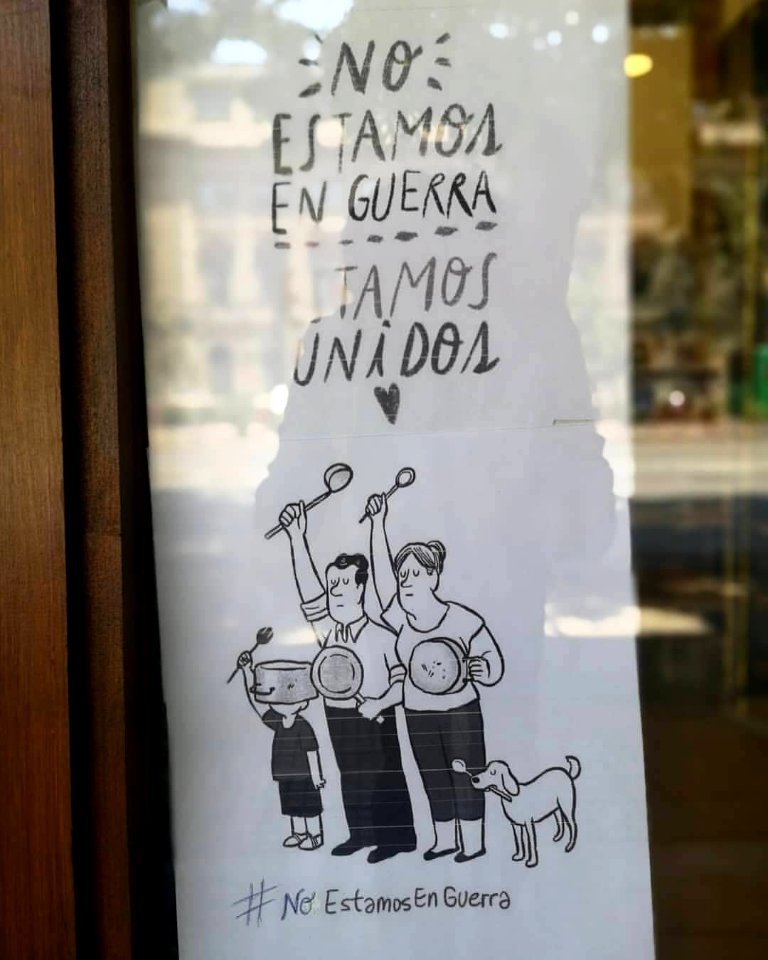 NO
ESTAMOS
EN GUERRA
TAMOS
UNIDOS
# No EstamosEnGuerra